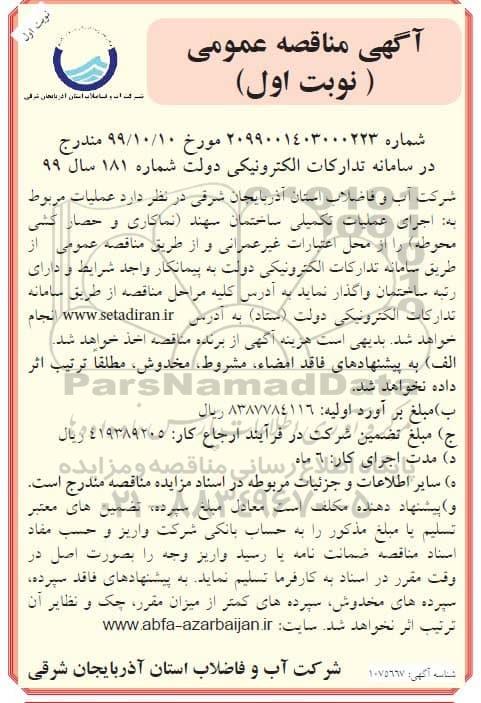 نوبت اول
شرکت آب و فاضلاب استان آذربایجان شرقی
آگهی مناقصه عمومی
( نوبت اول)
شماره ۲۰۹۹۰۰۱۴۰۳۰۰۰۲۲۳ مورخ ۹۹/۱۰/۱۰ مندرج
در سامانه تدارکات الکترونیکی دولت شماره ۱۸۱ سال ۹۹
شرکت آب و فاضلاب استان آذربایجان شرقی در نظر دارد عملیات مربوط
به: اجرای عملیات تکمیلی ساختمان سهند (نماکاری و حصار کشی
محوطه) را از محل اعتبارات غیرعمرانی و از طریق مناقصه عمومی از
طریق سامانه تدارکات الکترونیکی دولت به پیمانکار واجد شرایط و دارای
رتبه ساختمان واگذار نماید به آدرس کلیه مراحل مناقصه از طریق سامانه
تدارکات الکترونیکی دولت (ستاد) به آدرس www.setadiran.ir انجام
خواهد شد. بدیهی است هزینه آگهی از برنده مناقصه اخذ خواهد شد.
الف) به پیشنهادهای فاقد امضاء، مشروط، مخدوش، مطلقاً ترتیب اثر
داده نخواهد شد.
ParsNamadData
ب)مبلغ بر آورد اولیه: ۸۳۸۷۷۸۴۱۱۶ ریال
ج) مبلغ تضمین شرکت در فرآیند ارجاع کار: ۴۱۹۳۸۹۲۰۵ ریال
د) مدت اجرای کار: ۶ ماه
پایگاه اطلاع رسانی مناقصه و مزایده
ه) سایر اطلاعات و جزئیات مربوطه در اسناد مزایده مناقصه مندرج است.
۰۲۱-۸۸۳۴۹۶۷۰-۵
و)پیشنهاد دهنده مکلف است معادل مبلغ سپرده، تضمین های معتبر
تسلیم یا مبلغ مذکور را به حساب بانکی شرکت واریز و حسب مفاد
اسناد مناقصه ضمانت نامه یا رسید واریز وجه را بصورت اصل در
وقت مقرر در اسناد به کارفرما تسلیم نماید. به پیشنهادهای فاقد سپرده،
سپرده های مخدوش، سپرده های کمتر از میزان مقرر، چک و نظایر آن
ترتیب اثر نخواهد شد. سایت: www.abfa-azarbaijan.ir
شناسه آگهی: ۱۰۷۵۶۶۷
شرکت آب و فاضلاب استان آذربایجان شرقی